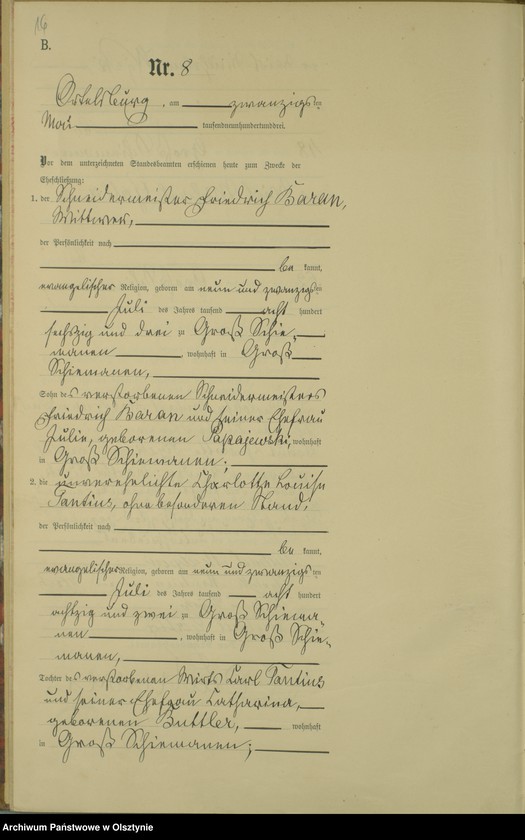 16
B.
Nr. 8
Ortelsburg, am zwanzigsten
Mai tausendneunhundertunddrei.
Vor dem unterzeichneten Standesbeamten erschienen heute zum Zwecke der
Eheschließung:
1. der Schneidermeister Friedrich Baran,
Wittwer,
der Persönlichkeit nach
be kannt,
evangelischer Religion, geboren am neun und zwanzigsten
Juli des Jahres tausend acht hundert
sechszig und drei zu Groß Schie-
manen, wohnhaft in Groß
Schiemanen,
Sohn des verstorbenen Schneidermeisters
Friedrich Baran und seiner Ehefrau
Julie, geborenen wohnhaft
in Groß Schiemanen;
2. die unverehelichte Charlotte Louise
ohne besonderen Stand,
der Persönlichkeit nach
be kannt,
evangelischer Religion, geboren am neun und zwanzigsten
Juli des Jahres tausend acht hundert
achtzig und zwei zu Groß Schiema-
nen, wohnhaft in Groß Schie-
manen,
Tochter des verstorbenen Wirts Carl
und seiner Ehefrau Catharina,
geborenen Buttler, wohnhaft
in Groß Schiemanen;
Archiwum Państwowe w Olsztynie